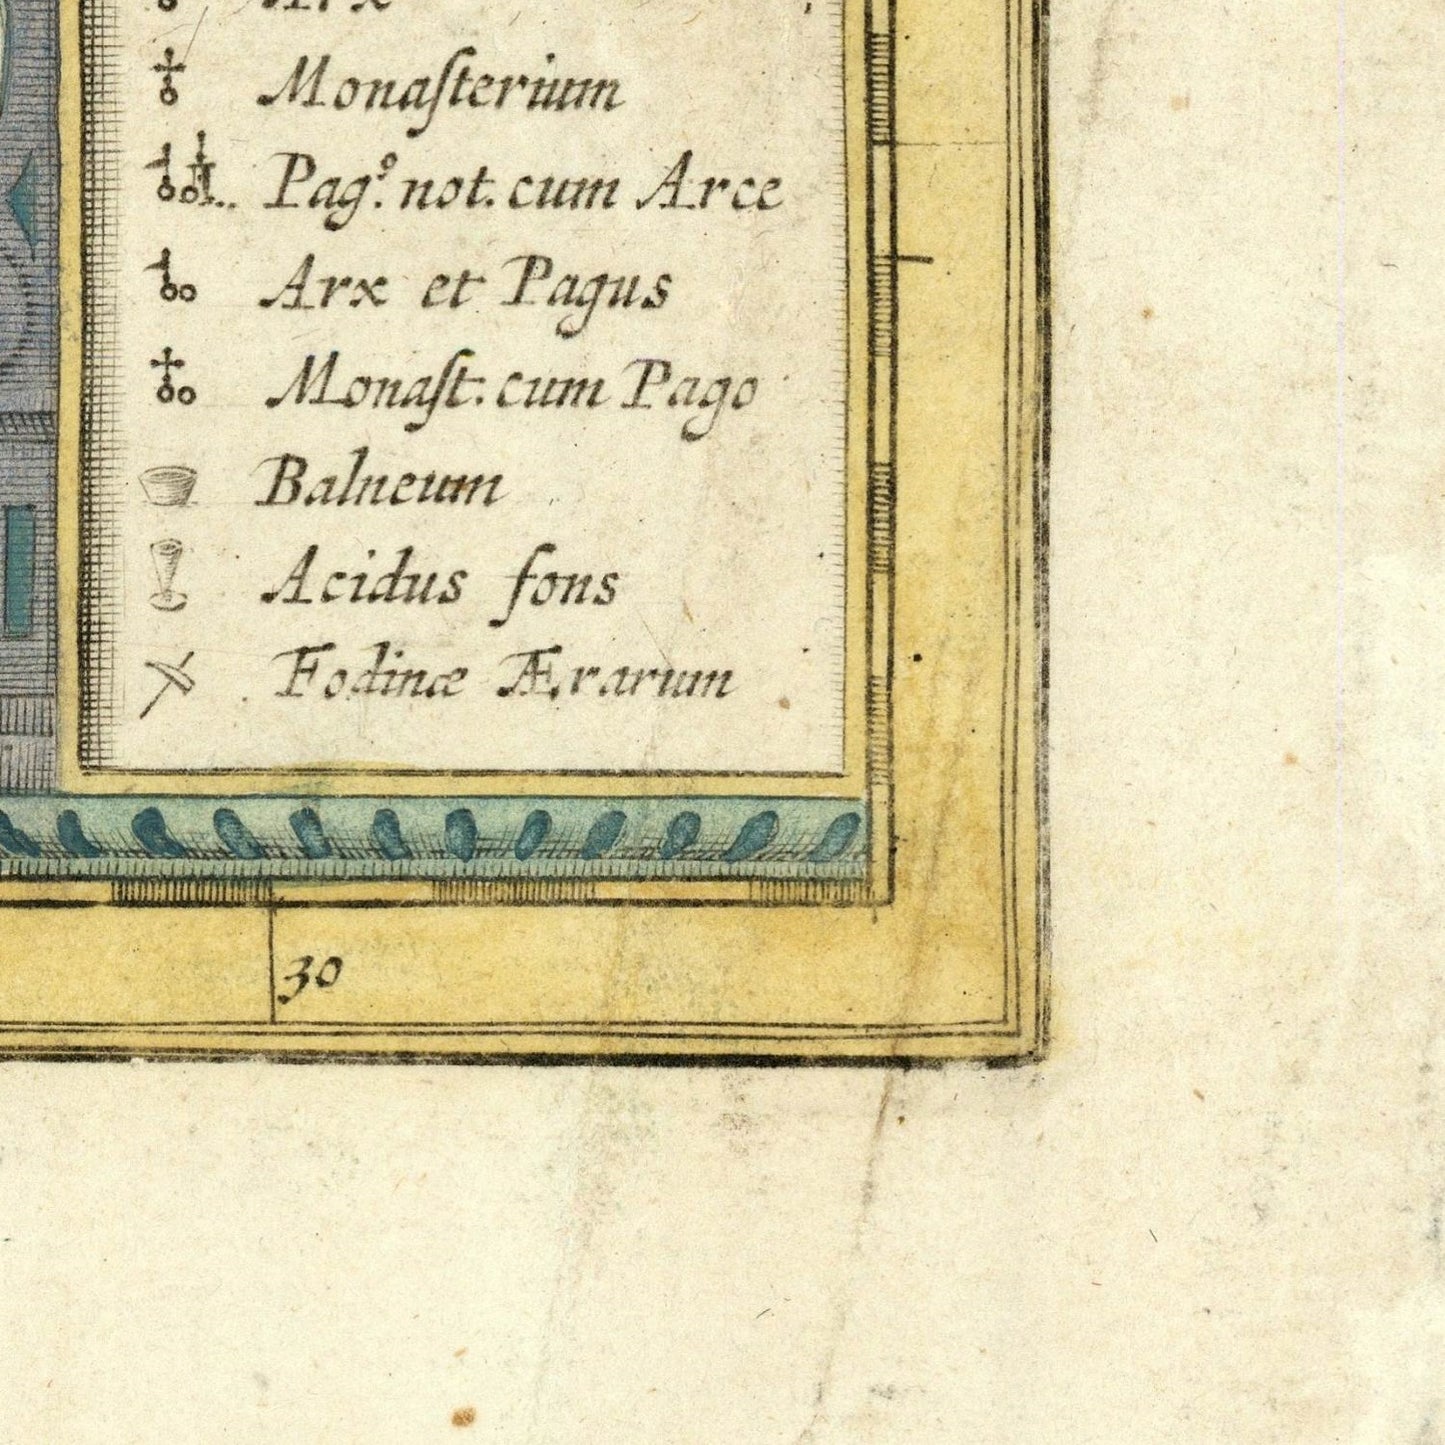 Arx
Monaſterium
Pag.⁹ not. cum Arce
Arx et Pagus
Monaſt: cum Pago
Balneum
Acidus fons
Fodinæ Ærarum
30